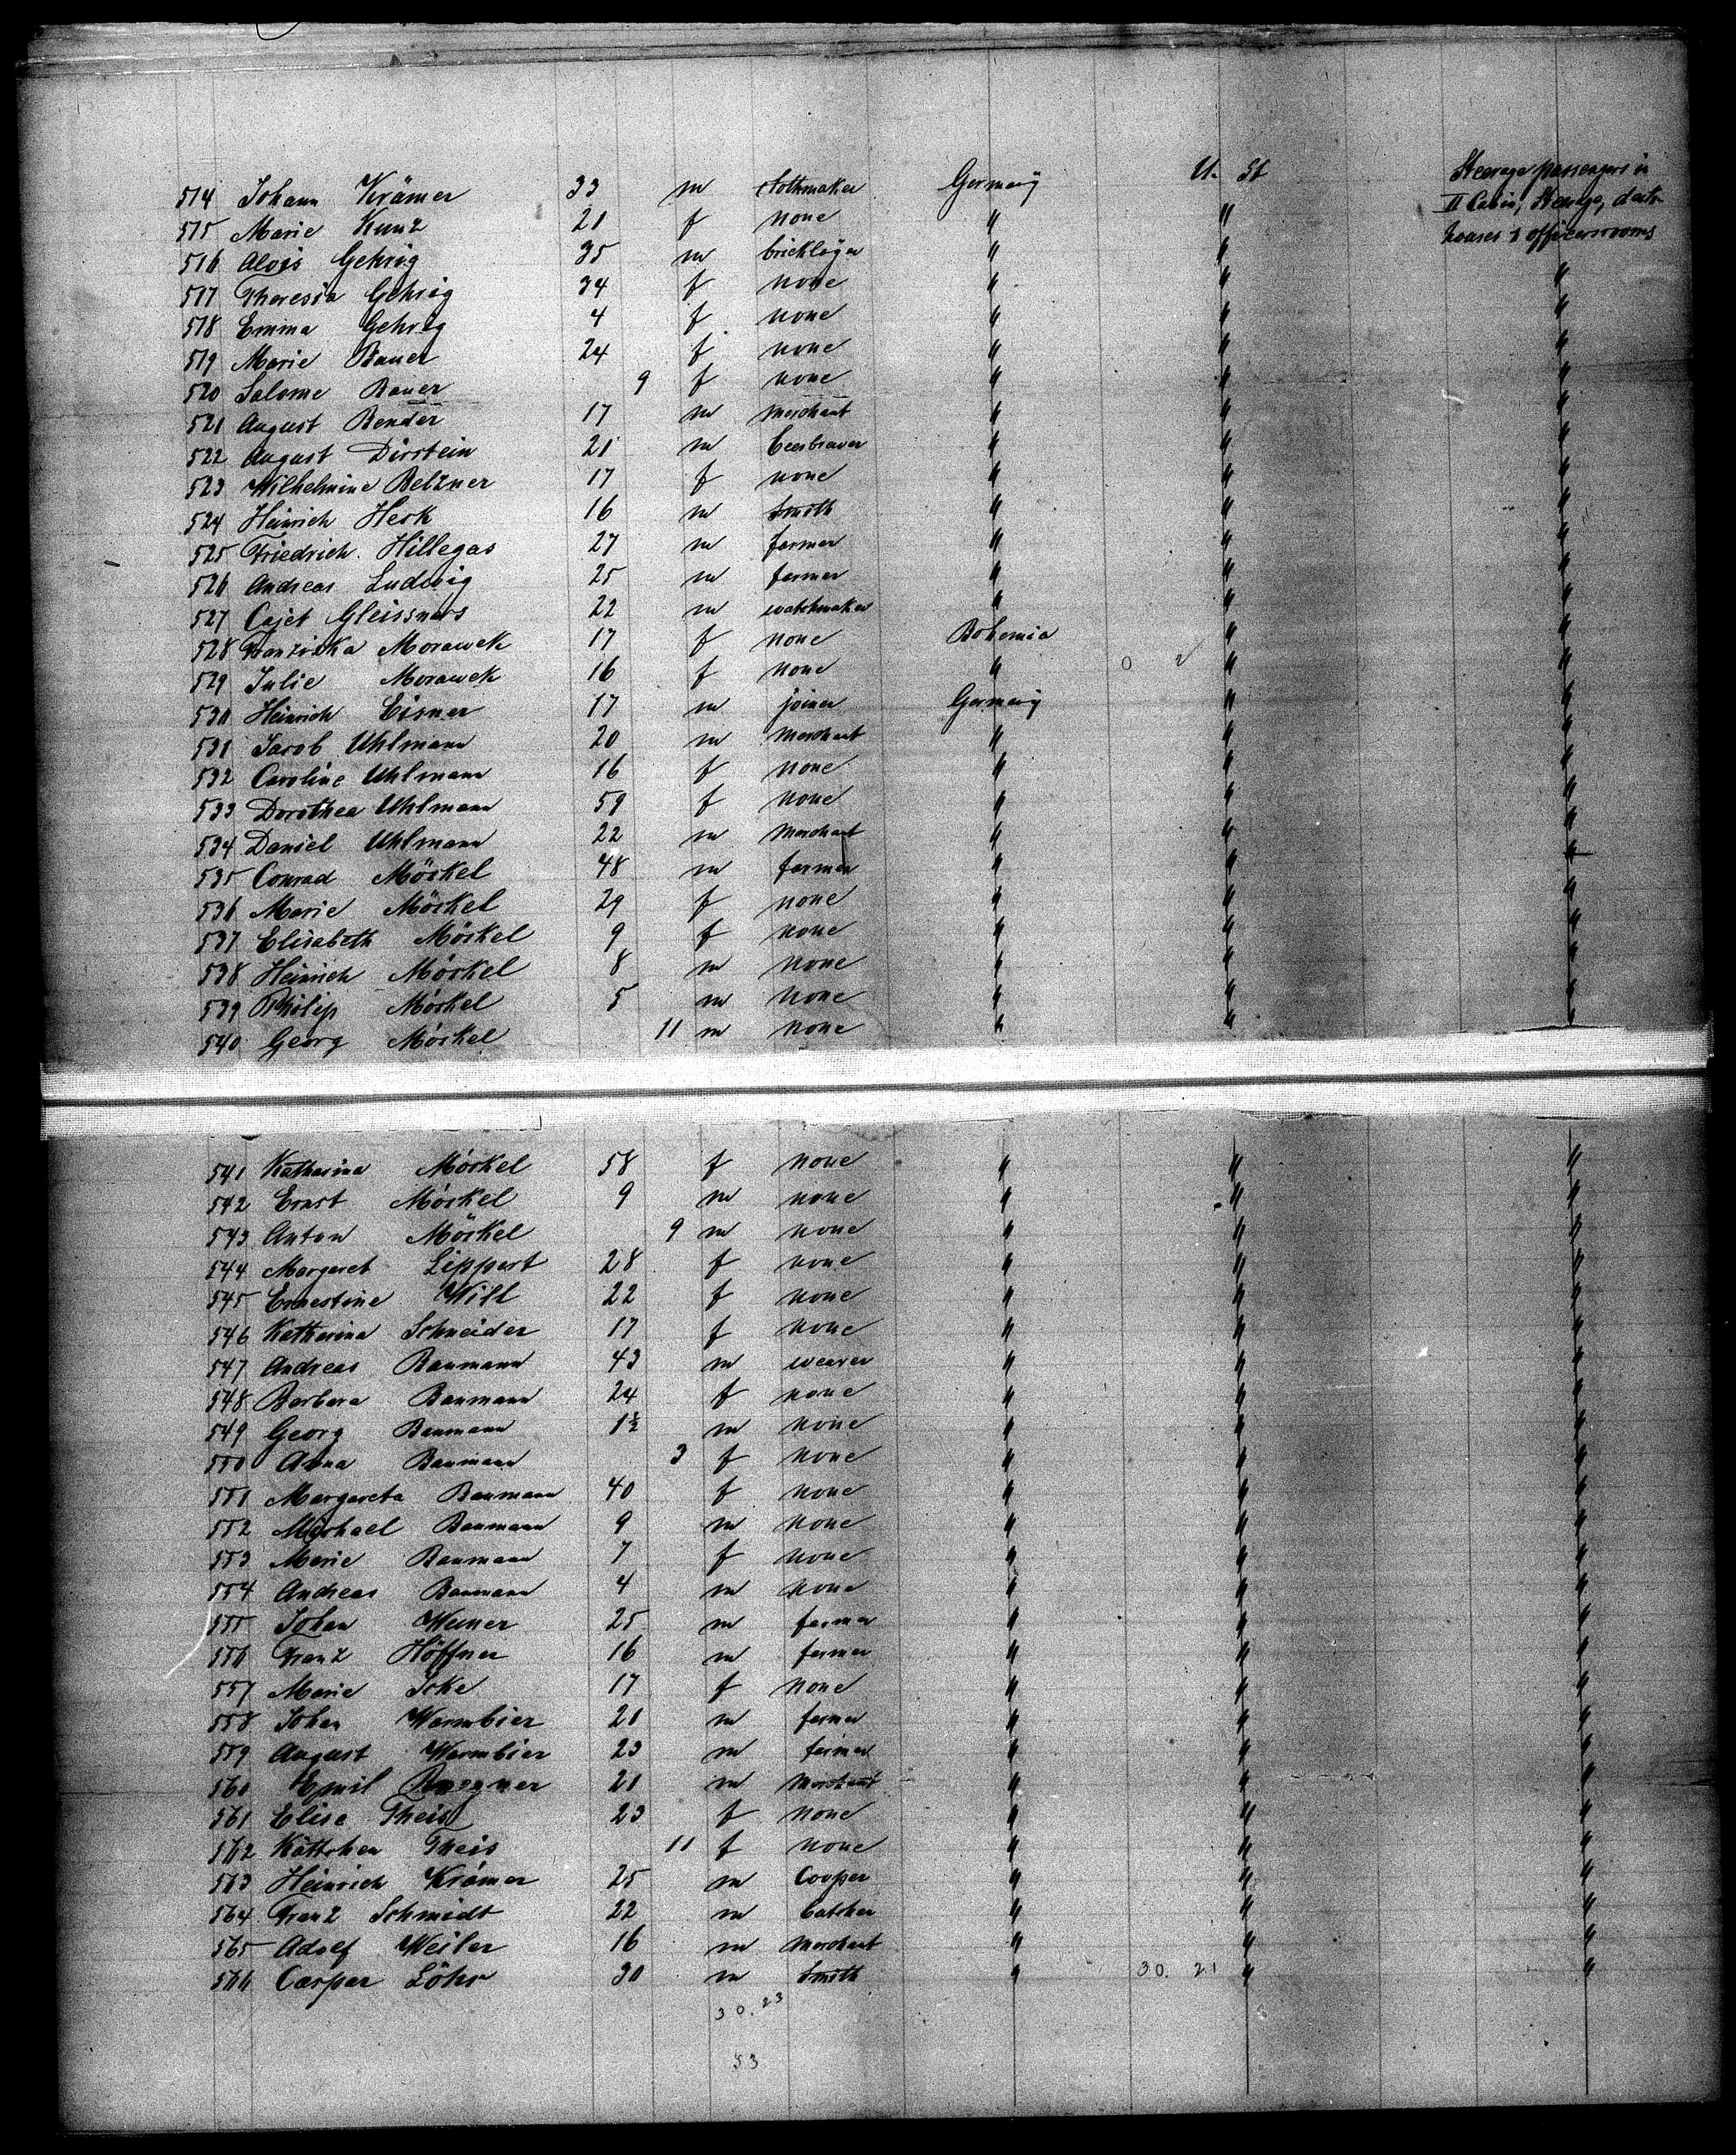 514 Johann Krämer 33 m Germany U. St Steerage passengers in
515 Marie Kunz 21 f none " " II Cabin, Steerage, deck-
516 Alois Gehrig 35 m bricklayer " " houses & officersrooms
517 Theresia Gehrig 34 f none " " "
518 Emma Gehrig 4 f none " " "
519 Marie Bauer 24 f none " " "
520 Salome Bauer 9 f none " " "
521 August Bender 17 m merchant " " "
522 August Dirstein 21 m beerbraver " " "
523 Wilhelmine Belzner 17 f none " " "
524 Heinrich Herk 16 m smith " " "
525 Friedrich Hillegas 27 m farmer " " "
526 Andreas Ludwig 25 m farmer " " "
527 Cajet Gleissners 22 m watchmaker " " "
528 Franziska Morawek 17 f none Bohemia " "
529 Julie Morawek 16 f none " 0 2 " "
530 Heinrich Eisner 17 m joiner Germany " "
531 Jacob Uhlmann 20 m merchant " " "
532 Caroline Uhlmann 16 f none " " "
533 Dorothea Uhlmann 59 f none " " "
534 Daniel Uhlmann 22 m merchant " " "
535 Conrad Möskel 48 m farmer " " "
536 Marie Möskel 29 f none " " "
537 Elisabeth Möskel 9 f none " " "
538 Heinrich Möskel 8 m none " " "
539 Philip Möskel 5 m none " " "
540 Georg Möskel 11 m none " " "
541 Katharina Möskel 58 f none " " "
542 Ernst Möskel 9 m none " " "
543 Anton Möskel 9 m none " " "
544 Margaret Lippert 28 f none " " "
545 Ernestine Will 22 f none " " "
546 Katharina Schneider 17 f none " " "
547 Andreas Baumann 43 m weaver " " "
548 Barbara Baumann 24 f none " " "
549 Georg Baumann 1½ m none " " "
550 Anna Baumann 3 f none " " "
551 Margareta Baumann 40 f none " " "
552 Michael Baumann 9 m none " " "
553 Marie Baumann 7 f none " " "
554 Andreas Baumann 4 m none " " "
555 Johan 25 m farmer " " "
556 Franz Höffner 16 m farmer " " "
557 Marie 17 f none " " "
558 Johan Warmbier 21 m farmer " " "
559 August Warmbier 23 m farmer " " "
560 Emil 21 m merchant " " "
561 Elise Theis 23 f none " " "
562 Kättchen Theis 11 f none " " "
563 Heinrich Krämer 25 m Cooper " " "
564 Franz Schmidt 22 m butcher " " "
565 Adolf Weiler 16 m merchant " " "
566 Caspar Löhr 30 m smith " 30. 21 " "
30.23
53